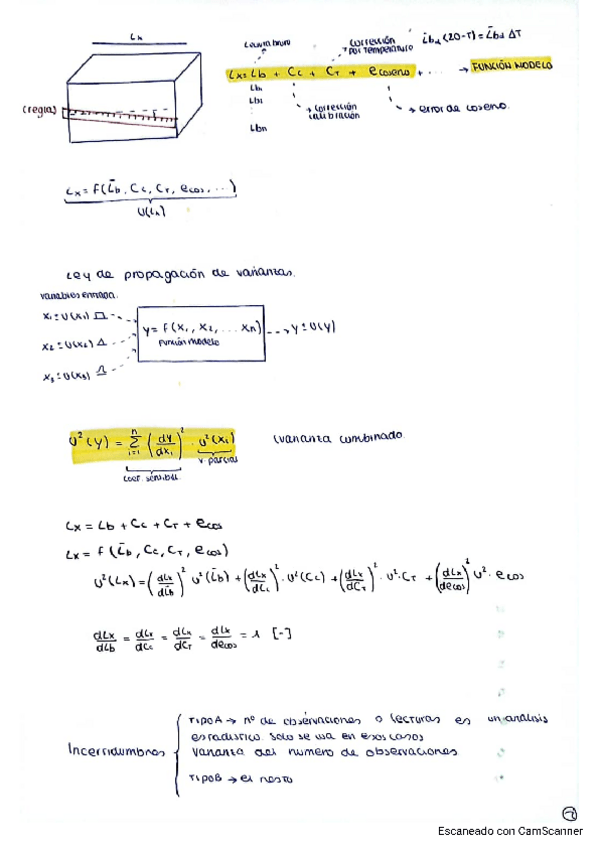 Lx
Lectura bruta
corrección por temperatura
L̄b α (20-T) = L̄b α ΔT
Lx = L̄b + Cc + Cτ + ecoseno + ... → FUNCIÓN MODELO
(regla)
Lb1
Lbn
→ corrección calibración
→ error de coseno.
Lx = f(L̄b, Cc, Cτ, ecos, ...)
U(Lx)
Ley de propagación de varianzas.
variables entrada.
x1 ± U(x1)
x2 ± U(x2)
x3 ± U(x3)
y = f(x1, x2, ... xn)
Función modelo
y ± U(y)
U²(y) = Σ i=1 n (dy/dxi)² · U²(xi) (varianza combinada.
coef. sensibil.
v. parcias
Lx = Lb + Cc + Cτ + ecos
Lx = f(L̄b, Cc, Cτ, ecos)
U²(Lx) = (dLx/dL̄b)² U²(L̄b) + (dLx/dCc)² · U²(Cc) + (dLx/dCτ)² · U² · Cτ + (dLx/decos)² U² · ecos
dLx/dLb = dLx/dCc = dLx/dCτ = dLx/decos = 1 [-]
Incertidumbres
TIPO A → nº de observaciones o lecturas es un análisis
estadístico. Solo se usa en esos casos
varianza del numero de observaciones
TIPO B → el resto
Escaneado con CamScanner